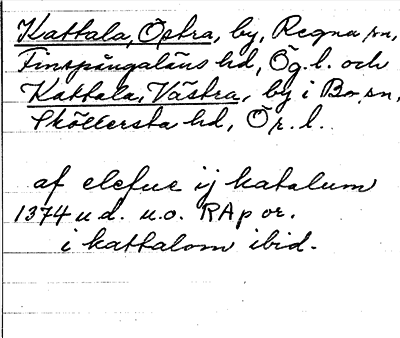 Kattala, Östra, by, Regna sn,
Finspångaläns hd, Ög.l. och
Kattala, Västra, by i Bo sn,
Sköllersta hd, Ör.l.
af elefue ij katalum
1374 u d. u.o. RAp or.
i kattalom ibid.